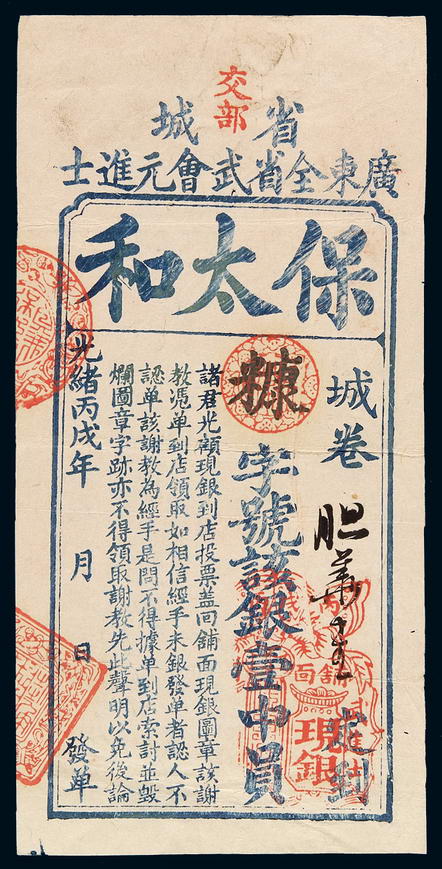 交部
省城
廣東全省武會元進士
保太和
城卷
胆
走到
糠
字號該銀壹中員
諸君光顧現銀到店投票蓋回舖面現銀圖章該謝
教憑单到店領取如相信經手未銀發单者認人不
認单該謝教為經手是問不得據单到店索討並毀
爛圖章字跡亦不得領取謝教先此聲明以免後論
光緒丙戌年 月 日 發单
舖面
現銀